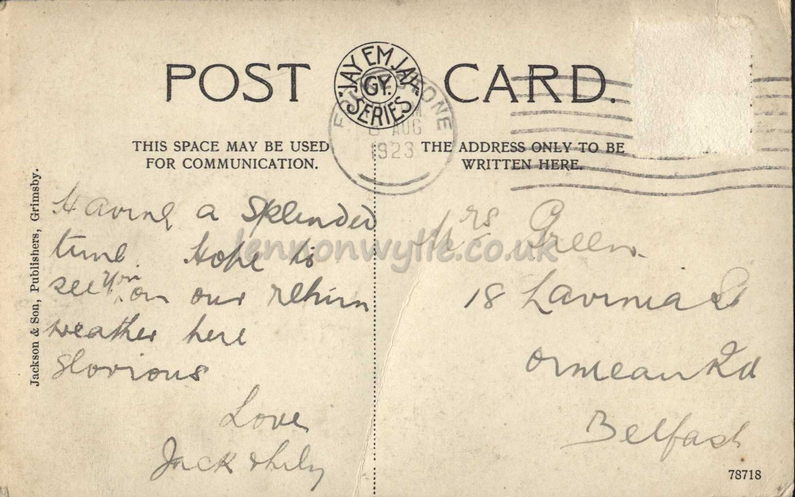 POST CARD.
JAY EM JAY
GY.
SERIES
F LKESTONE
AUG
1923
THIS SPACE MAY BE USED
FOR COMMUNICATION.
THE ADDRESS ONLY TO BE
WRITTEN HERE.
Jackson & Son, Publishers, Grimsby.
Having a splendid
time. Hope to
see you on our return
weather here
glorious
Love
Jack & Lily
Mrs Green.
18 Lavinia St
Ormeau Rd
Belfast
78718
jennonwylie.co.uk